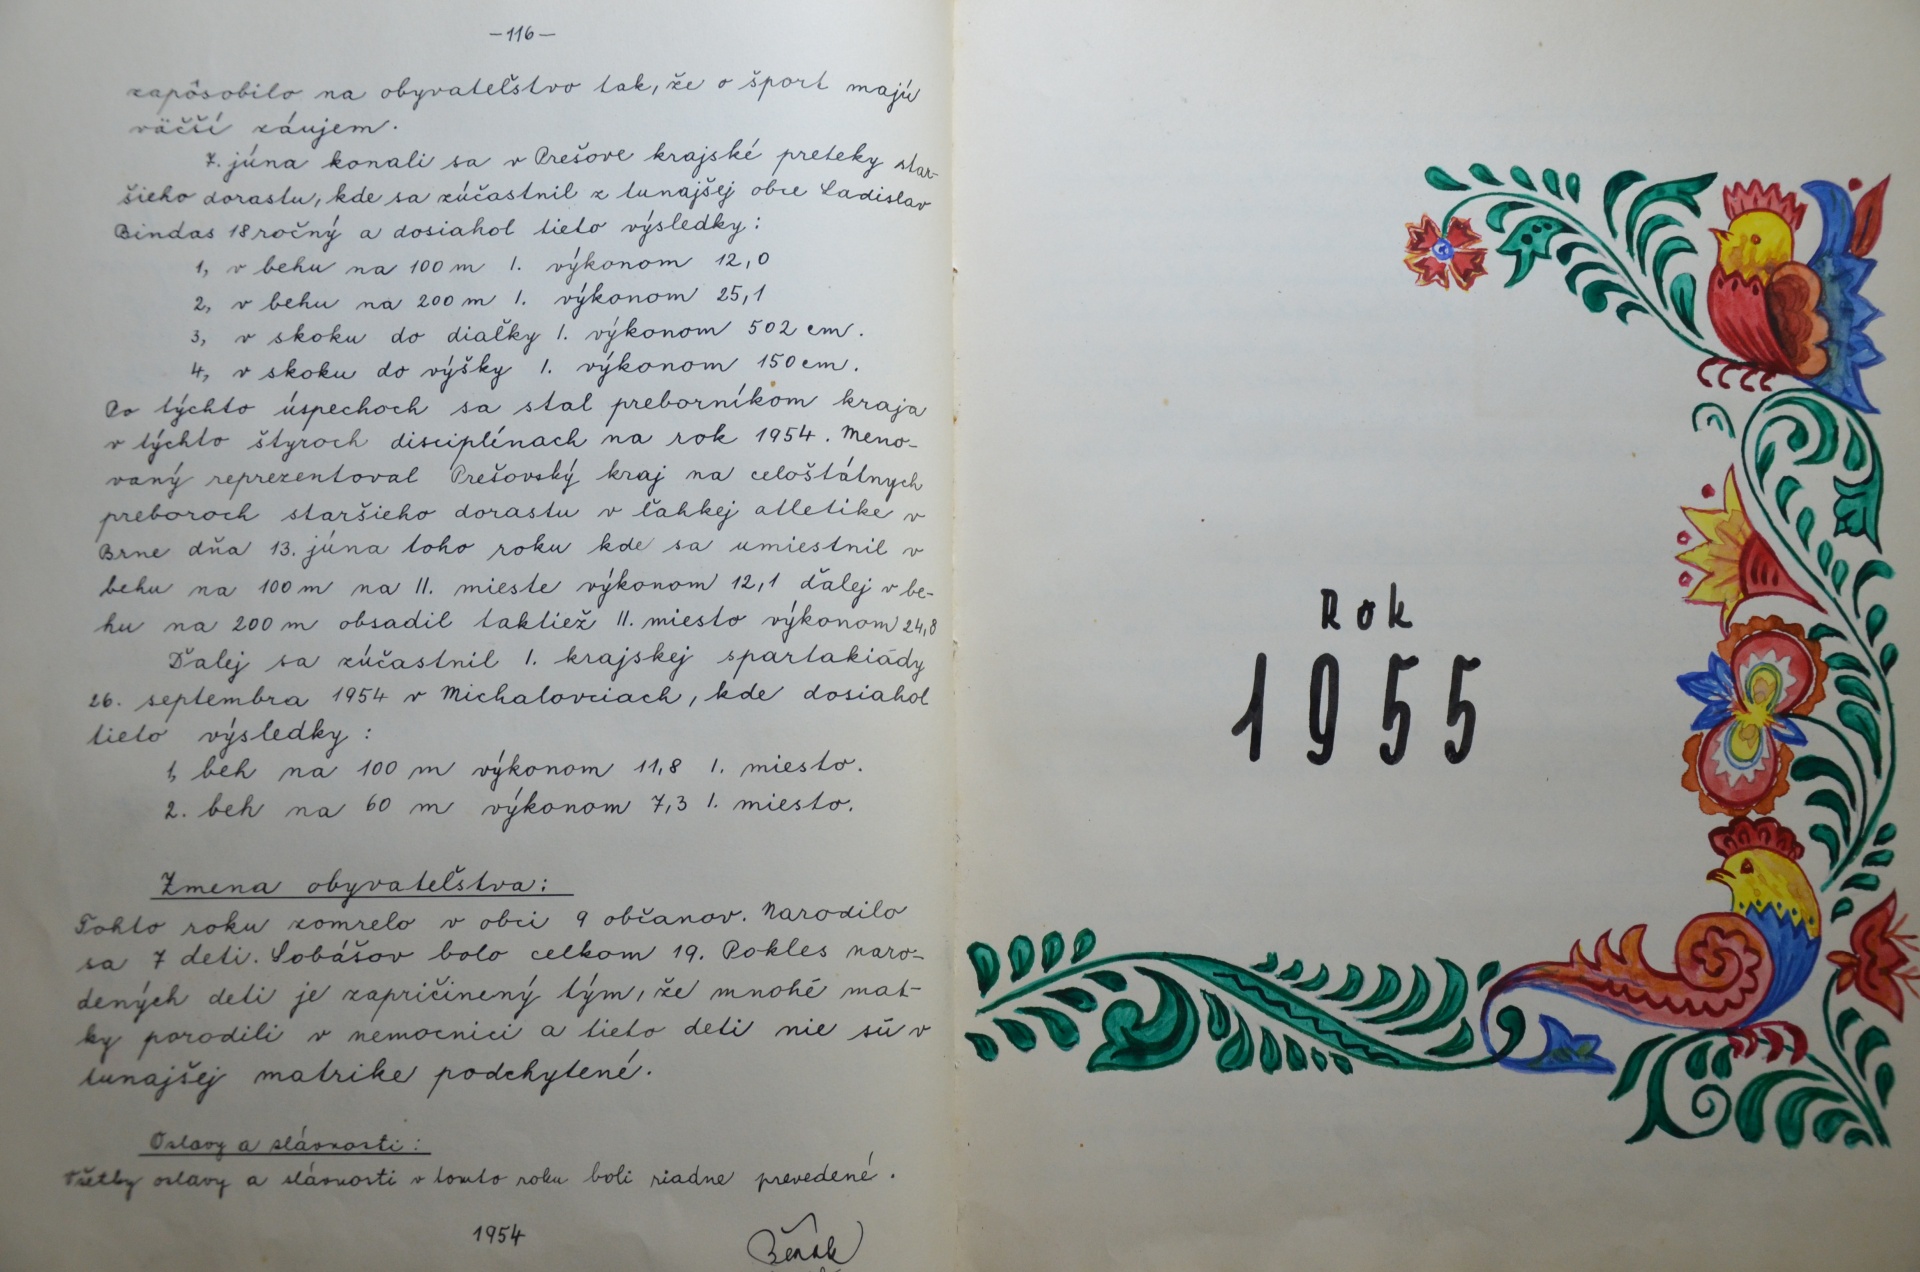 –116–
zapôsobilo na obyvateľstvo tak, že o šport majú
väčší záujem.
7. júna konali sa v Prešove krajské preteky star-
šieho dorastu, kde sa zúčastnil z tunajšej obce Ladislav
Bindas 18 ročný a dosiahol tieto výsledky:
1, v behu na 100 m I. výkonom 12,0
2, v behu na 200 m I. výkonom 25,1
3, v skoku do diaľky I. výkonom 502 cm.
4, v skoku do výšky I. výkonom 150 cm.
Po týchto úspechoch sa stal preborníkom kraja
v týchto štyroch disciplénach na rok 1954. Meno-
vaný reprezentoval Prešovský kraj na celoštátnych
preboroch staršieho dorastu v ľahkej atletike v
Brne dňa 13. júna toho roku kde sa umiestnil v
behu na 100 m na II. mieste výkonom 12,1 ďalej v be-
hu na 200 m obsadil taktiež II. miesto výkonom 24,8
Ďalej sa zúčastnil I. krajskej spartakiády
26. septembra 1954 v Michalovciach, kde dosiahol
tieto výsledky:
1, beh na 100 m výkonom 11,8 I. miesto.
2. beh na 60 m výkonom 7,3 I. miesto.
Zmena obyvateľstva:
Tohto roku zomrelo v obci 9 občanov. Narodilo
sa 7 deti. Sobášov bolo celkom 19. Pokles naro-
dených deti je zapričinený tým, že mnohé mat-
ky porodili v nemocnici a tieto deti nie sú v
tunajšej matrike podchytené.
Oslavy a slávnosti:
Všetky oslavy a slávnosti v tomto roku boli riadne prevedené.
1954
Rok
1955